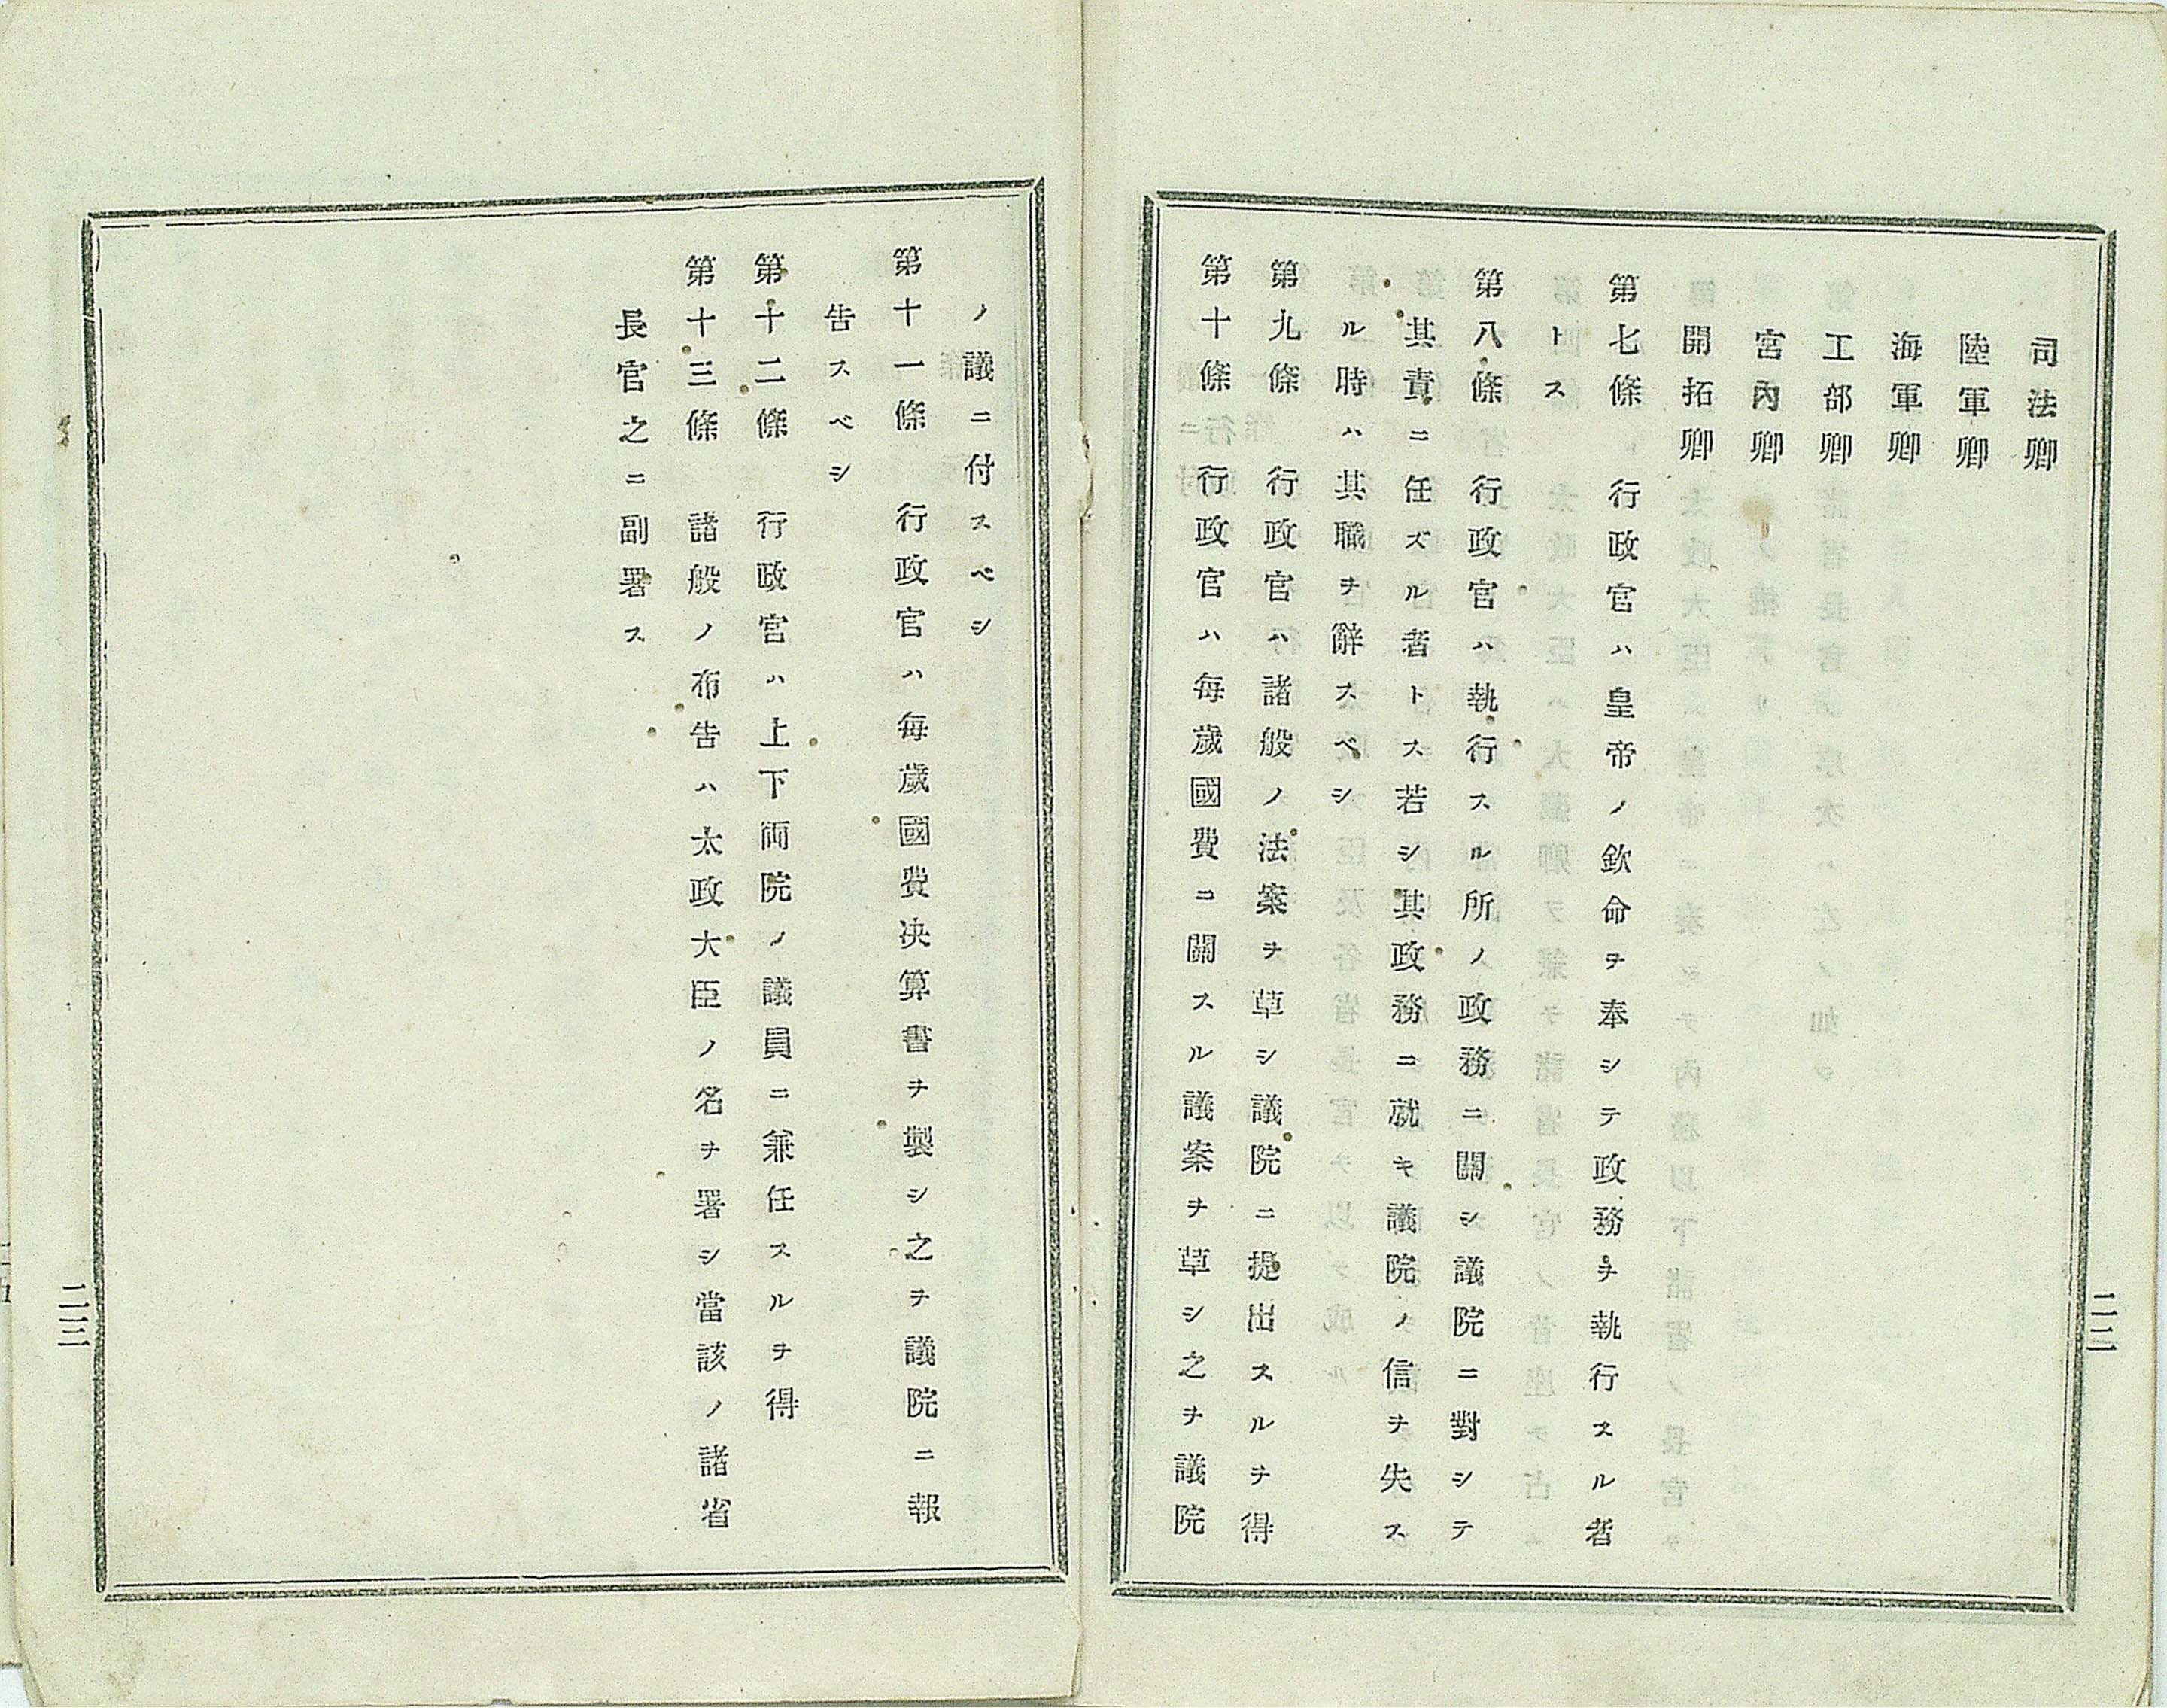 司法卿
陸軍卿
海軍卿
工部卿
宮內卿
開拓卿
第七條　行政官ハ皇帝ノ欽命ヲ奉シテ政務ヲ執行スル者
トス
第八條　行政官ハ執行スル所ノ政務ニ關シ議院ニ對シテ
其責ニ任ズル者トス若シ其政務ニ就キ議院ノ信ヲ失ス
ル時ハ其職ヲ辭スベシ
第九條　行政官ハ諸般ノ法案ヲ草シ議院ニ提出スルヲ得
第十條　行政官ハ每歲國費ニ關スル議案ヲ草シ之ヲ議院
二二
ノ議ニ付スベシ
第十一條　行政官ハ每歲國費決算書ヲ製シ之ヲ議院ニ報
告スベシ
第十二條　行政官ハ上下両院ノ議員ニ兼任スルヲ得
第十三條　諸般ノ布告ハ太政大臣ノ名ヲ署シ當該ノ諸省
長官之ニ副署ス
二三